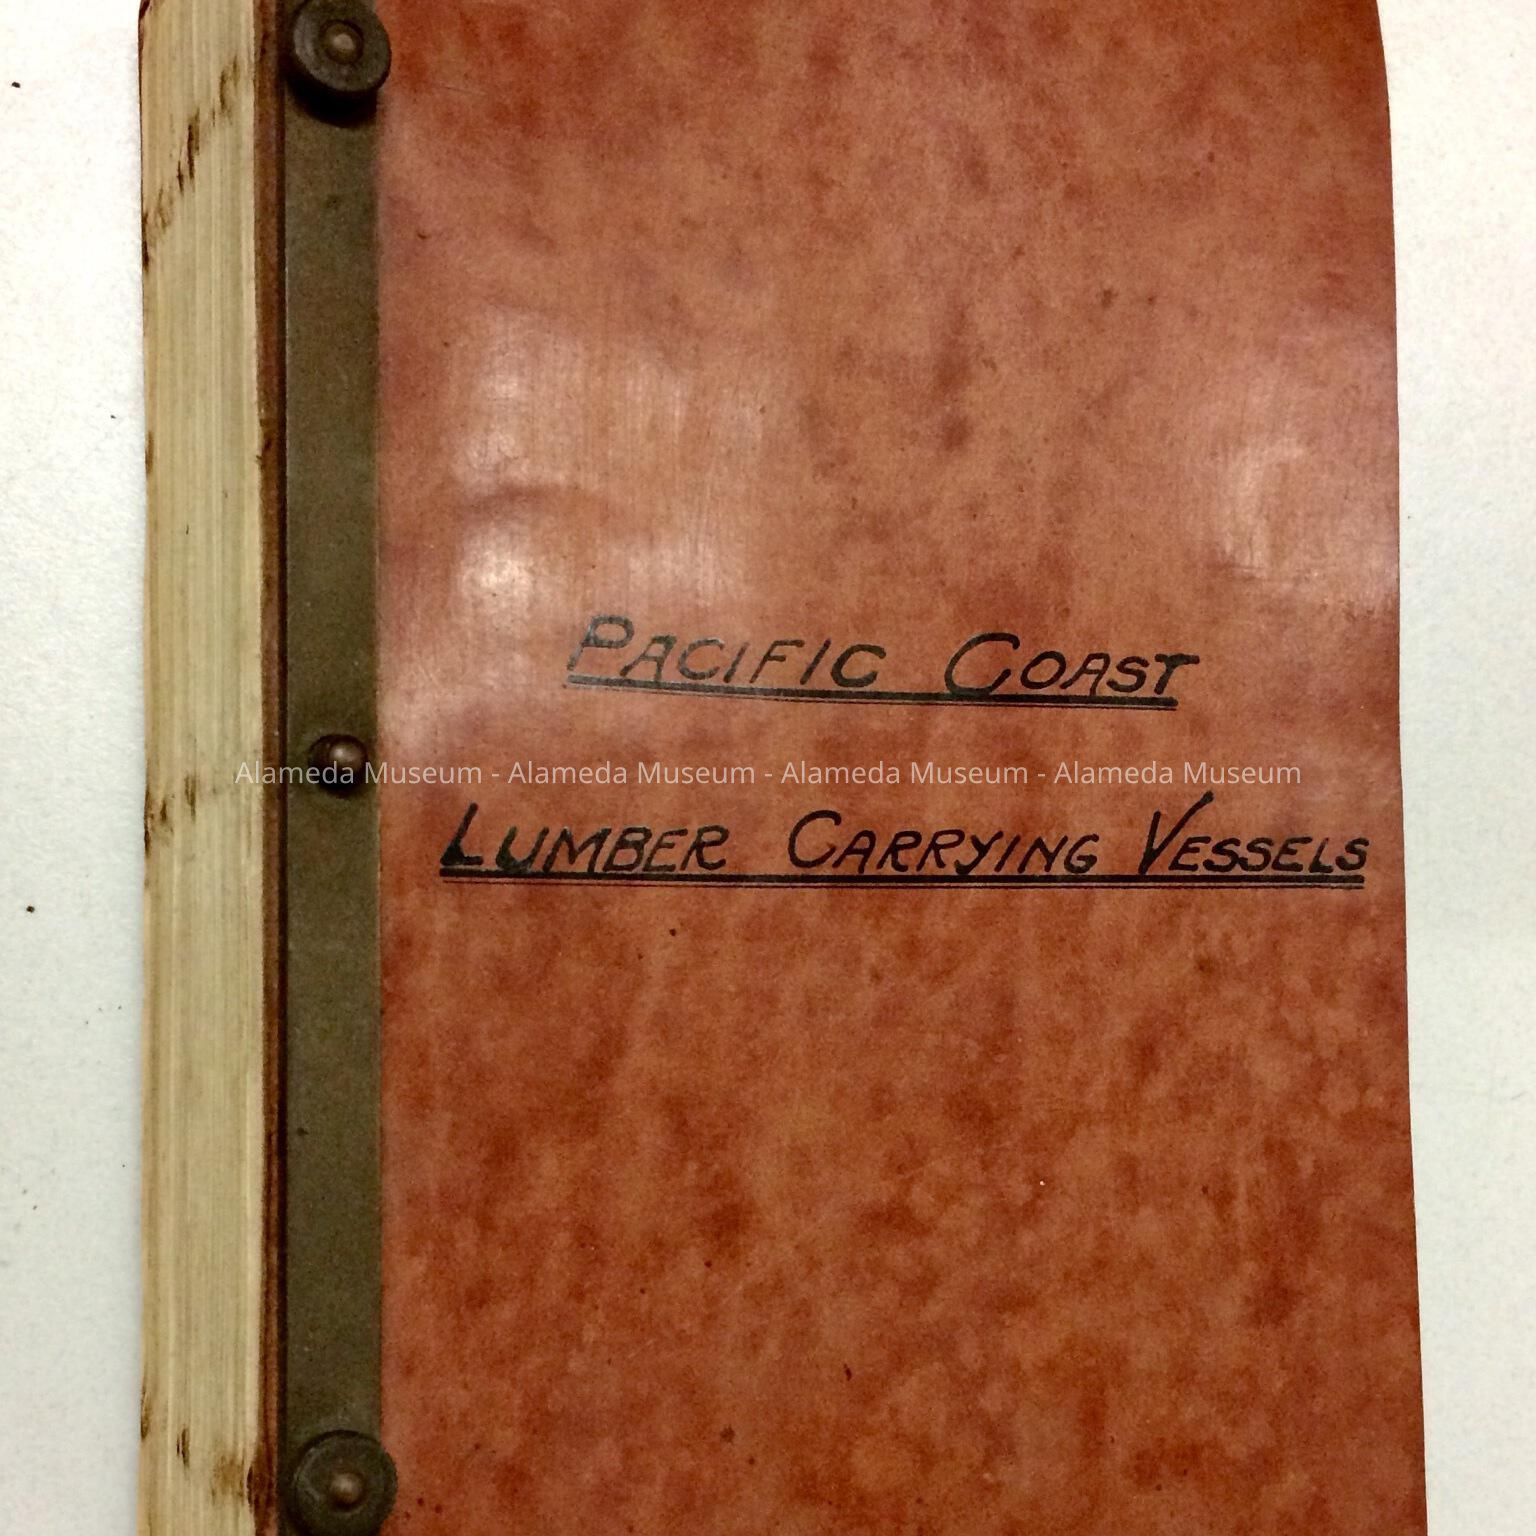 PACIFIC COAST
Alameda Museum - Alameda Museum - Alameda Museum - Alameda Museum
LUMBER CARRYING VESSELS